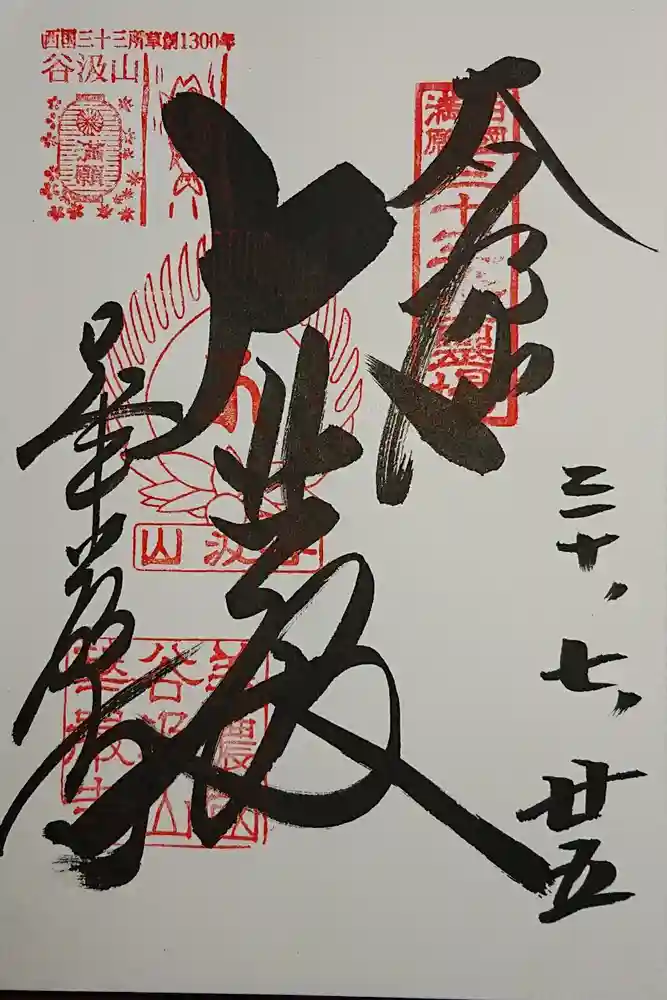 奉拝
三十、七、廿五
大悲殿
華厳寺
西国三十三所草創1300年
谷汲山
満願
西國
満願
三十三番霊場
山汲谷
美濃國
谷汲山
華嚴寺